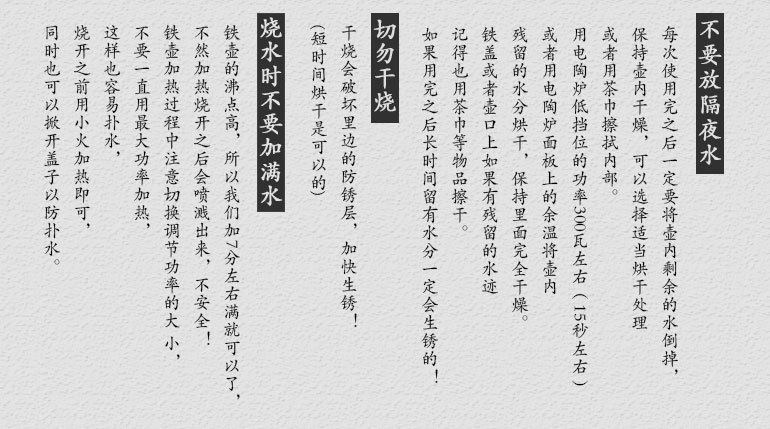 不要放隔夜水
每次使用完之后一定要将壶内剩余的水倒掉，
保持壶内干燥，可以选择适当烘干处理
或者用茶巾擦拭内部。
用电陶炉低挡位的功率300瓦左右（15秒左右）
或者用电陶炉面板上的余温将壶内
残留的水分烘干，保持里面完全干燥。
铁盖或者壶口上如果有残留的水迹
记得也用茶巾等物品擦干。
如果用完之后长时间留有水分一定会生锈的！
切勿干烧
干烧会破坏里边的防锈层，加快生锈！
(短时间烘干是可以的)
烧水时不要加满水
铁壶的沸点高，所以我们加7分左右满就可以了，
不然加热烧开之后会喷溅出来，不安全！
铁壶加热过程中注意切换调节功率的大小，
不要一直用最大功率加热，
这样也容易扑水，
烧开之前用小火加热即可，
同时也可以掀开盖子以防扑水。